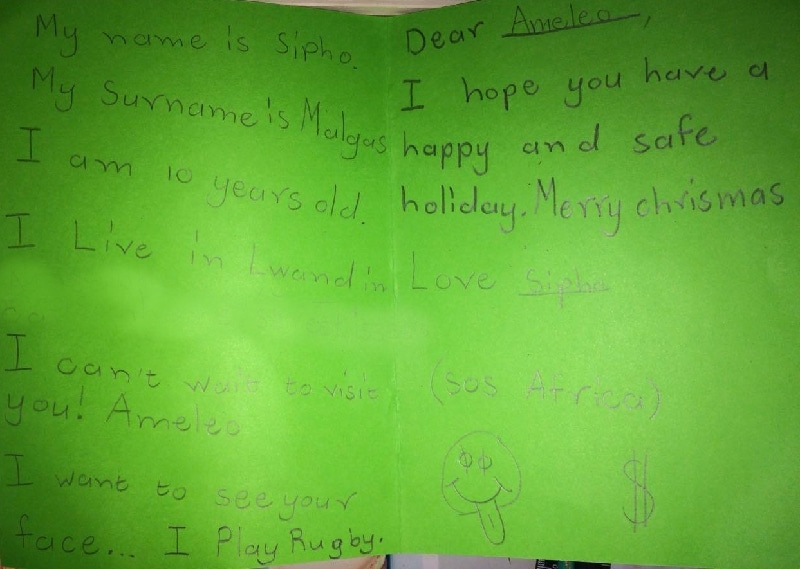 My name is Sipho.
My Surname is Malgas
I am 10 years old.
I Live in Lwandin
I can't wait to visit
you! Ameleo
I want to see your
face... I Play Rugby.
Dear Ameleo,
I hope you have a
happy and safe
holiday. Merry chrismas
Love Sipho
(SOS Africa)
$